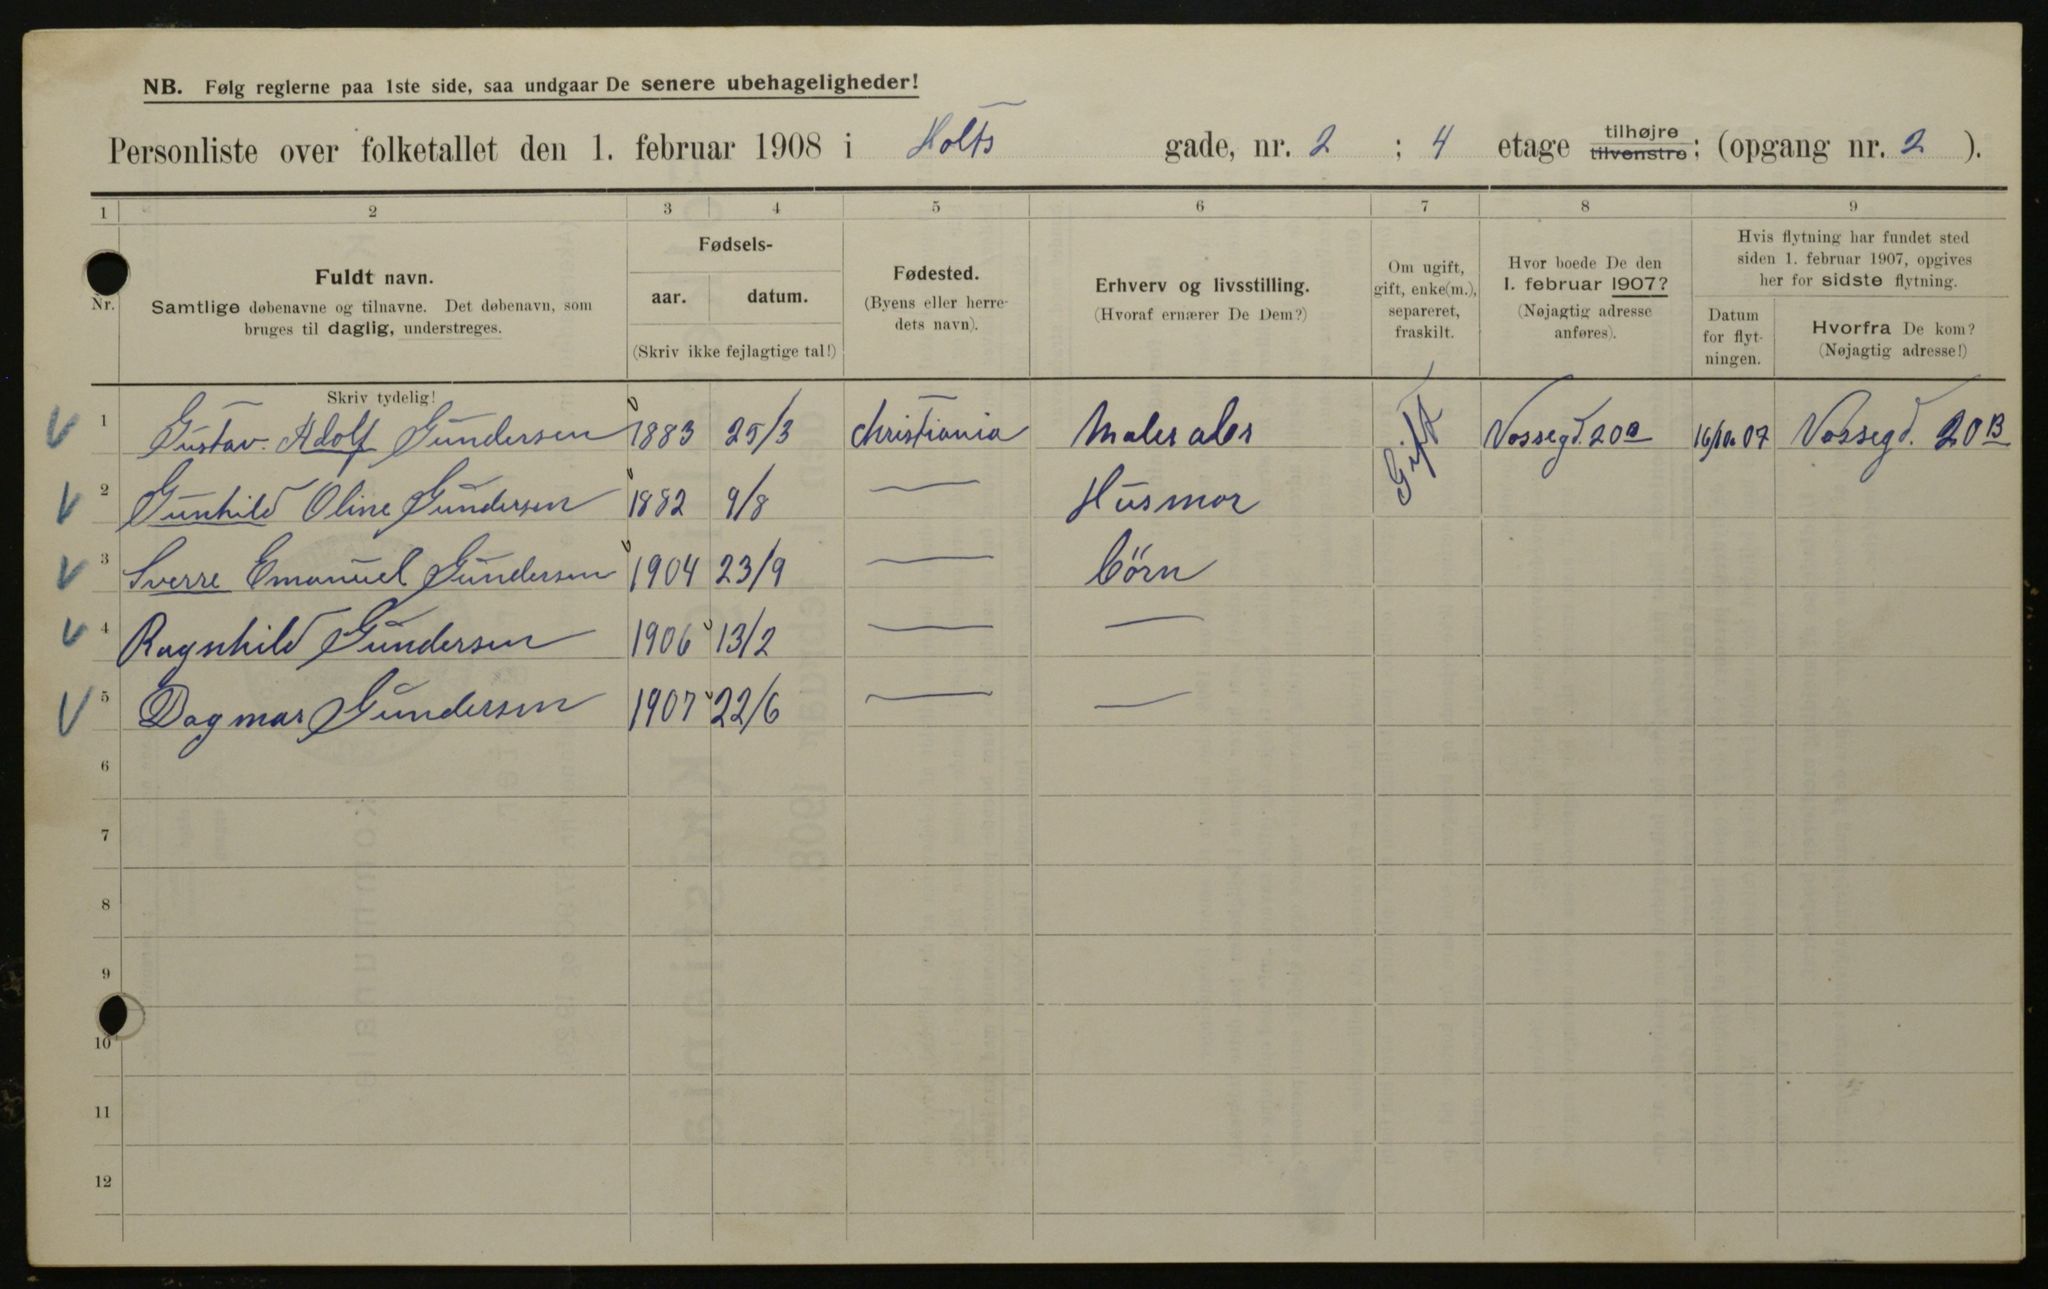 NB. Følg reglerne paa 1ste side, saa undgaar De senere ubehageligheder!
Personliste over folketallet den 1. februar 1908 i Holts gade, nr. 2 ; 4 etage tilhøjre tilvenstre; (opgang nr. 2 ).
1 2 3 4 5 6 7 8 9
Nr.
Fuldt navn.
Samtlige døbenavne og tilnavne. Det døbenavn, som
bruges til daglig, understreges.
Fødsels-
aar. datum.
(Skriv ikke fejlagtige tal!)
Fødested.
(Byens eller herre-
dets navn).
Erhverv og livsstilling.
(Hvoraf ernærer De Dem?)
Om ugift,
gift, enke(m.),
separeret,
fraskilt.
Hvor boede De den
1. februar 1907?
(Nøjagtig adresse
anføres).
Hvis flytning har fundet sted
siden 1. februar 1907, opgives
her for sidste flytning.
Datum
for flyt-
ningen.
Hvorfra De kom?
(Nøjagtig adresse!)
Skriv tydelig!
1 Gustav. Adolf Gundersen 1883 25/3 Christiania Maler Gift Vossegd. 20B 16/10 07 Vossegd. 20B
2 Gunhild Oline Gundersen 1882 9/8 — Husmor
3 Sverre Emanuel Gundersen 1904 23/9 — Börn
4 Ragnhild Gundersen 1906 13/2 — —
5 Dagmar Gundersen 1907 22/6 — —
6
7
8
9
10
11
12